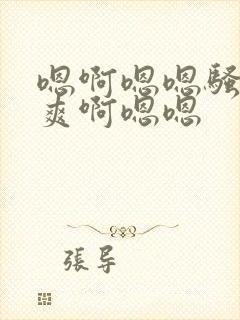 嗯啊嗯嗯骚
爽啊嗯嗯
張导